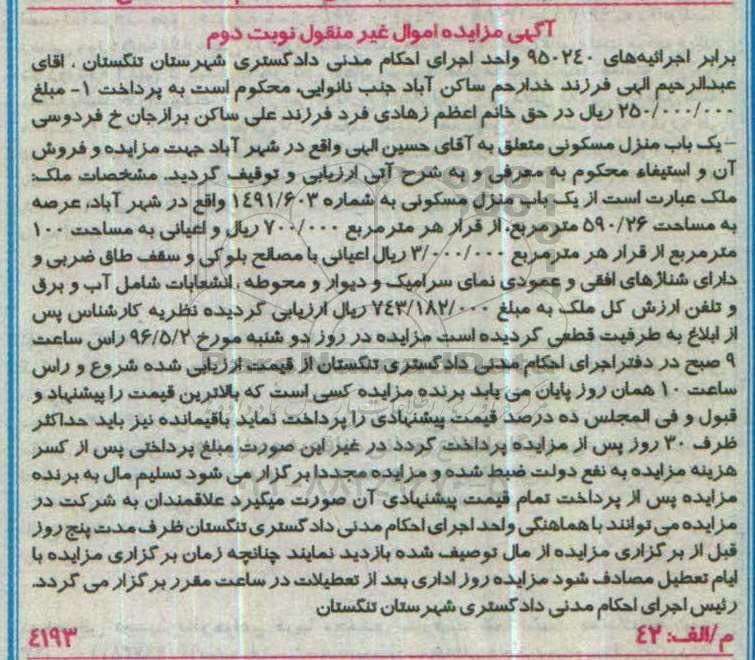 آگهی مزایده اموال غیر منقول نوبت دوم
برابر اجرائیه‌های ۹۵۰۲۴۰ واحد اجرای احکام مدنی دادگستری شهرستان تنگستان . آقای
عبدالرحیم الهی فرزند خدارحم ساکن آباد جنب نانوایی، محکوم است به پرداخت ۱- مبلغ
۲۵۰/۰۰۰/۰۰۰ ریال در حق خانم اعظم زهادی فرد فرزند علی ساکن برازجان خ فردوسی
- یک باب منزل مسکونی متعلق به آقای حسین الهی واقع در شهر آباد جهت مزایده و فروش
آن و استیفاء محکوم به معرفی و به شرح آتی ارزیابی و توقیف گردید. مشخصات ملک:
ملک عبارت است از یک باب منزل مسکونی به شماره ۱۴۹۱/۶۰۳ واقع در شهر آباد، عرصه
به مساحت ۵۹۰/۲۶ مترمربع، از قرار هر مترمربع ۷۰۰/۰۰۰ ریال و اعیانی به مساحت ۱۰۰
مترمربع از قرار هر مترمربع ۳/۰۰۰/۰۰۰ ریال اعیانی با مصالح بلوکی و سقف طاق ضربی و
دارای شناژهای افقی و عمودی نمای سرامیک و دیوار و محوطه ، انشعابات شامل آب و برق
و تلفن ارزش کل ملک به مبلغ ۷۴۳/۱۸۲/۰۰۰ ریال ارزیابی گردیده نظریه کارشناس پس
از ابلاغ به طرفیت قطعی گردیده است مزایده در روز دو شنبه مورخ ۹۶/۵/۲ راس ساعت
۹ صبح در دفتر اجرای احکام مدنی دادگستری تنگستان از قیمت ارزیابی شده شروع و راس
ساعت ۱۰ همان روز پایان می یابد برنده مزایده کسی است که بالاترین قیمت را پیشنهاد و
قبول و فی المجلس ده درصد قیمت پیشنهادی را پرداخت نماید باقیمانده نیز باید حداکثر
ظرف ۳۰ روز پس از مزایده پرداخت گردد در غیر این صورت مبلغ پرداختی پس از کسر
هزینه مزایده به نفع دولت ضبط شده و مزایده مجددا برگزار می شود تسلیم مال به برنده
مزایده پس از پرداخت تمام قیمت پیشنهادی آن صورت میگیرد علاقمندان به شرکت در
مزایده می توانند با هماهنگی واحد اجرای احکام مدنی دادگستری تنگستان ظرف مدت پنج روز
قبل از برگزاری مزایده از مال توصیف شده بازدید نمایند چنانچه زمان برگزاری مزایده با
ایام تعطیل مصادف شود مزایده روز اداری بعد از تعطیلات در ساعت مقرر برگزار می گردد.
رئیس اجرای احکام مدنی دادگستری شهرستان تنگستان
م/الف: ۴۲
۴۱۹۳